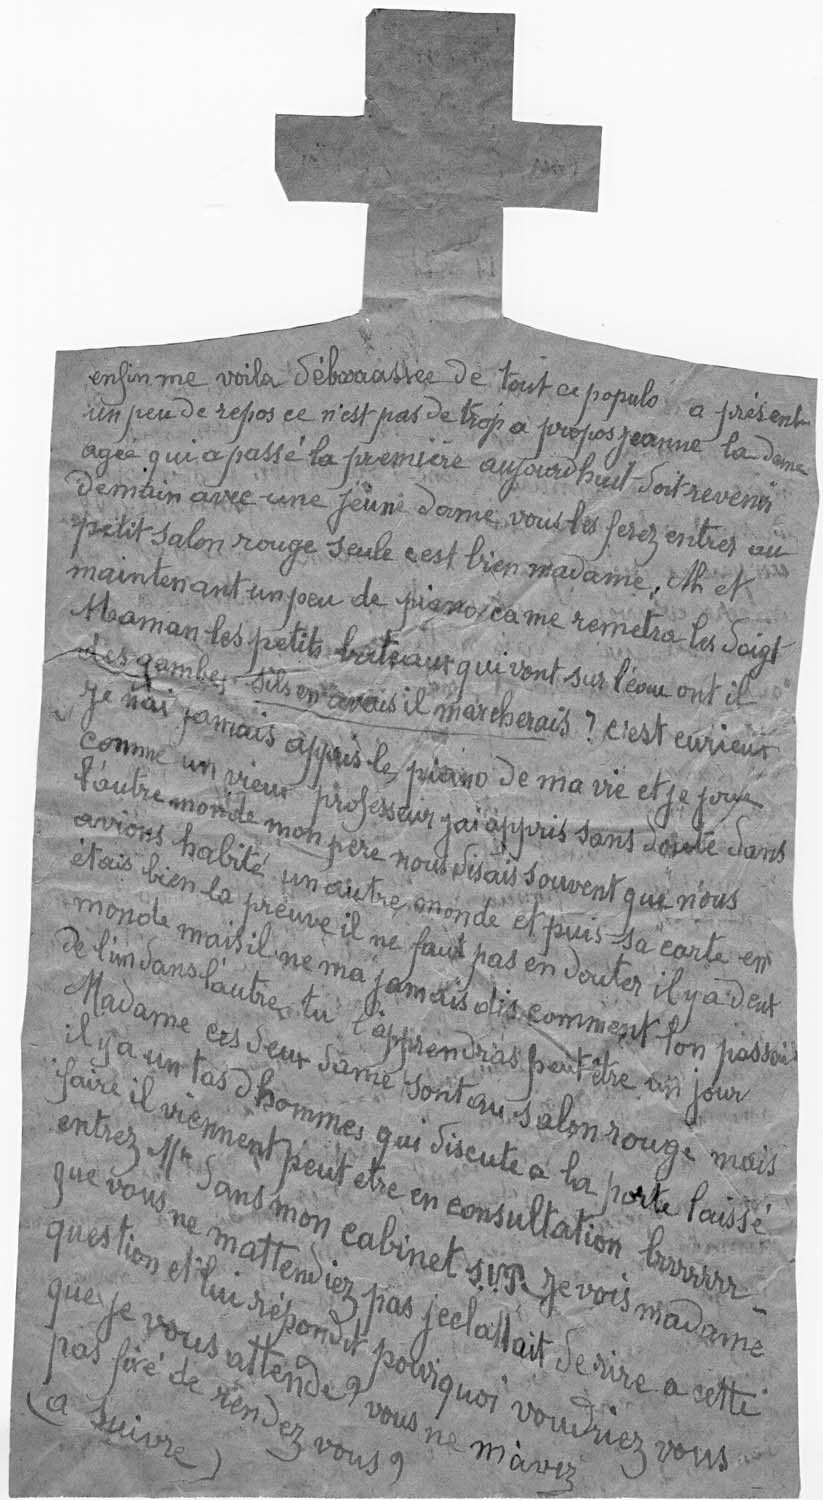 enfin me voila débaaassée de tout ce populo a présent
un peu de repos ce n'est pas de trop a propos jeanne la dame
agée qui a passé la première aujourdhuit doit revenir
demain avec une jeune dame vous les ferez entrer au
petit salon rouge seule c est bien madame, Ah et
maintenant un peu de piano ca me remetra les doigt
Maman les petits bateaux qui vont sur l'éau ont il
des gambes sils en avais il marcherais ? c'est curieux
je n'ai jamais appris le piano de ma vie et je joue
comme un vieux professeur jai appris sans doute dans
l'autre monde mon père nous disais souvent que nous
avions habité un autre monde et puis sa carte en
étais bien la preuve il ne faut pas en douter il y a deux
monde mais il ne ma jamais dis comment l'on passais
de l'un dans l'autre tu l'apprendras peut être un jour
Madame ces deux dame sont au salon rouge mais
il y a un tas d hommes qui discute a la porte laissé
faire il viennent peut etre en consultation brrrrrrr
entrez Mr dans mon cabinet S.V.P. je vois madame
que vous ne mattendiez pas jeclattait de rire a cette
question et lui répondit pourquoi voudriez vous
que je vous attende ? vous ne m'avez
pas fixé de rendez vous ?
(a suivre)